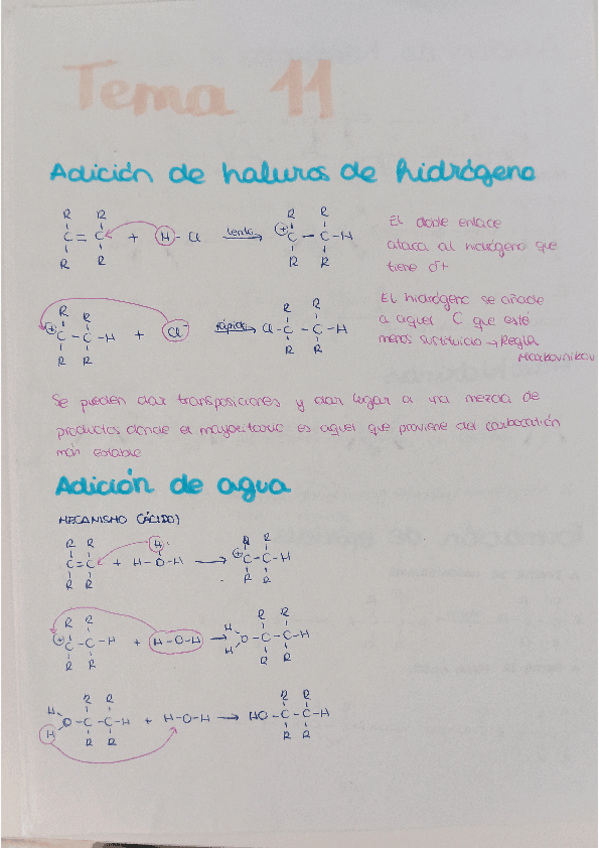 Tema 11
Adición de haluros de hidrógeno
R R R R
C = C + H - Cl lento → ⊕C - C - H
R R R R
El doble enlace
ataca al hidrógeno que
tiene δ+
R R R R
⊕C - C - H + Cl⁻ rápido → Cl - C - C - H
R R R R
El hidrógeno se añade
a aquel C que esté
menos sustituido → Regla
Markovnikov
Se pueden dar transposiciones y dar lugar a una mezcla de
productos donde el mayoritario es aquel que proviene del carbocatión
más estable
Adición de agua
MECANISMO (ÁCIDO)
R R H R R
C = C + H - O - H → ⊕C - C - H
R R R R
R R H R R
⊕C - C - H + H - O - H → O - C - C - H
R R H R R
H R R R R
O - C - C - H + H - O - H → HO - C - C - H
H R R R R